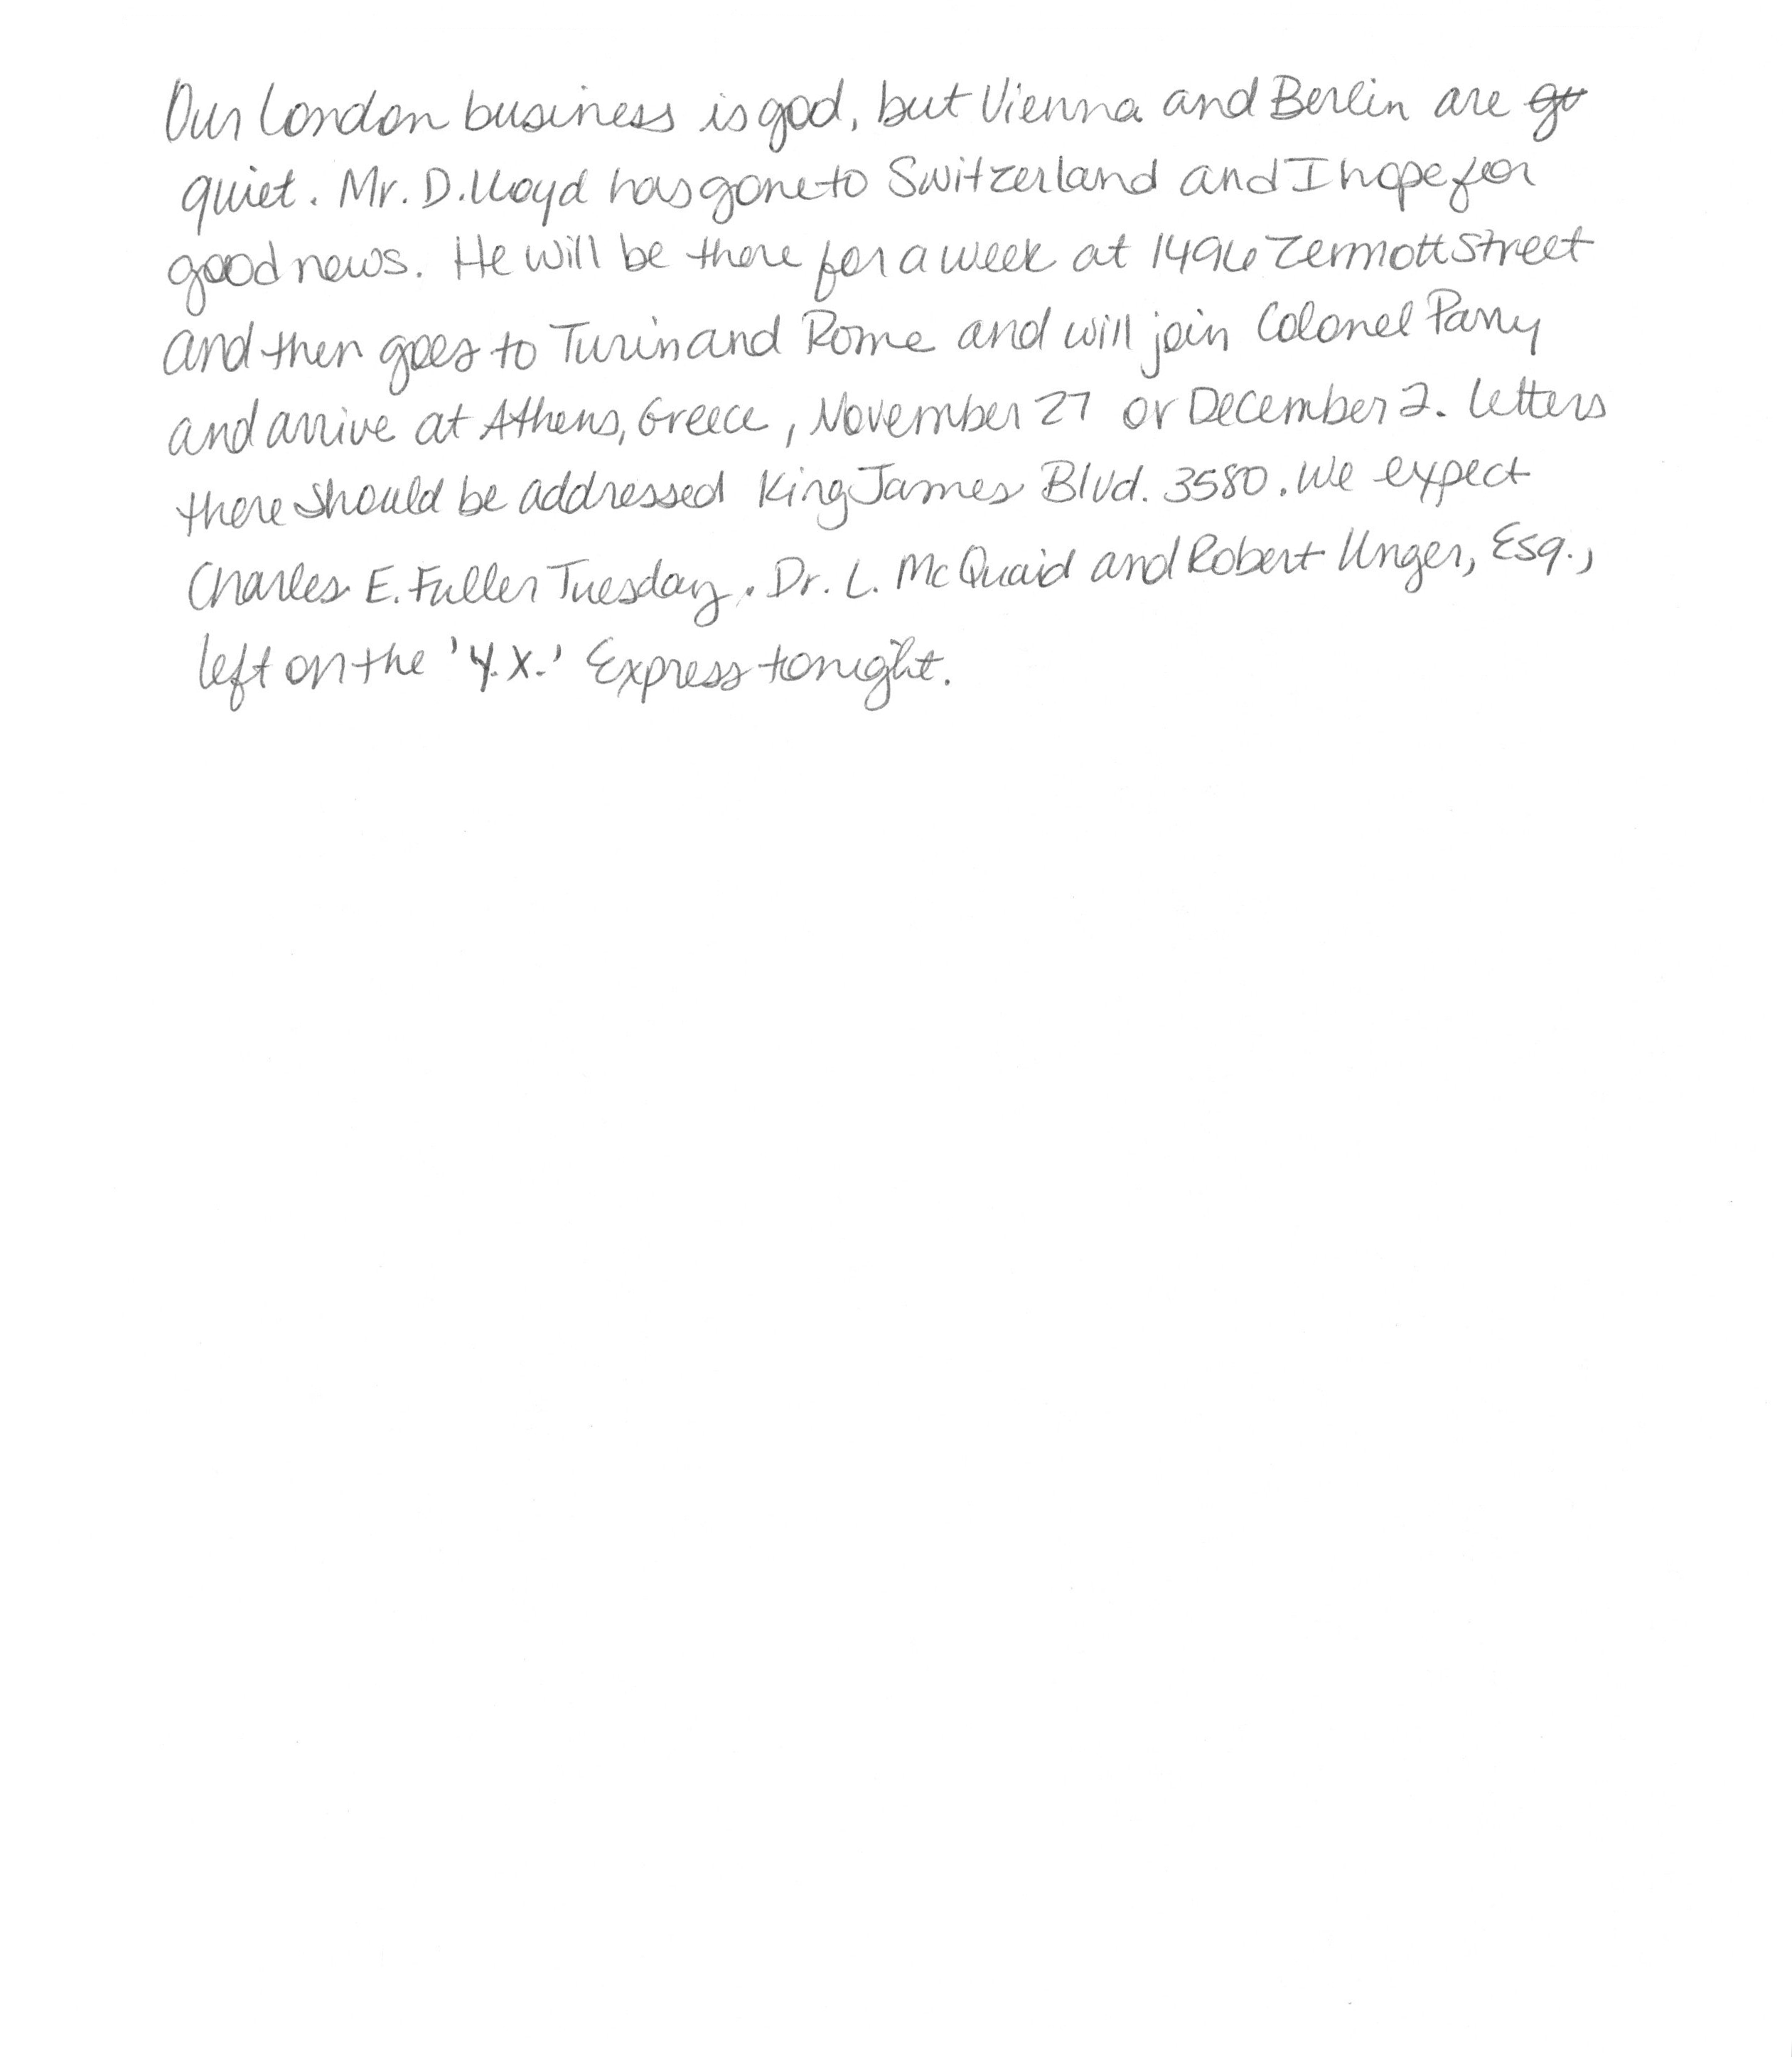 Our London business is good, but Vienna and Berlin are
quiet. Mr. D. Lloyd has gone to Switzerland and I hope for
good news. He will be there for a week at 1496 Zermott Street
and then goes to Turin and Rome and will join Colonel Parry
and arrive at Athens, Greece, November 27 or December 2. Letters
there should be addressed King James Blvd. 3580. We expect
Charles E. Fuller Tuesday. Dr. L. McQuaid and Robert Unger, Esq.,
left on the 'Y.X.' Express tonight.